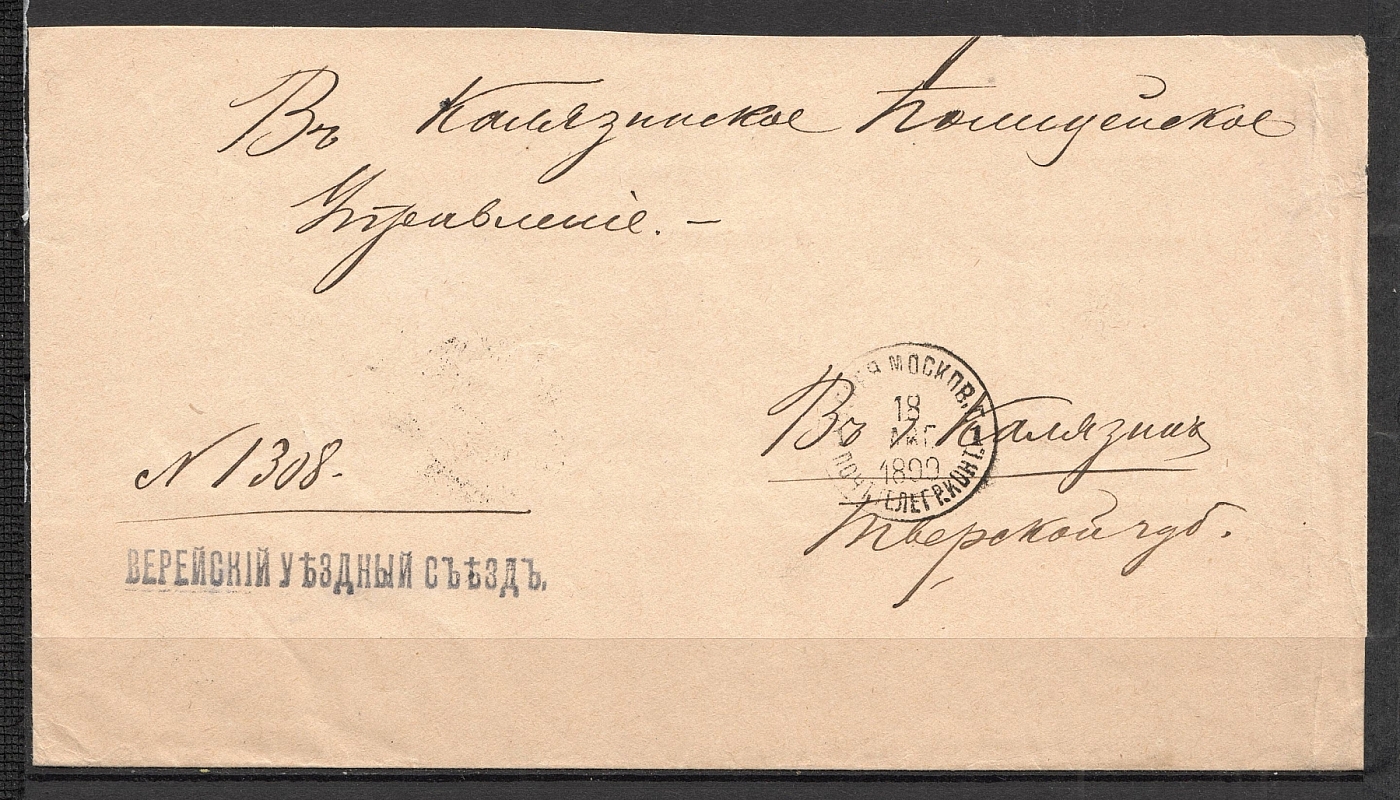 Въ Калязинское Полицейское
Управленіе. —
ВЕРЕЯ МОСКОВ. Г.
18
1899
ПОЧТ. ТЕЛЕГР. КОНТ.
Въ г. Калязинъ
Тверской губ.
N 1308.
ВЕРЕЙСКІЙ УѢЗДНЫЙ СЪѢЗДЪ.